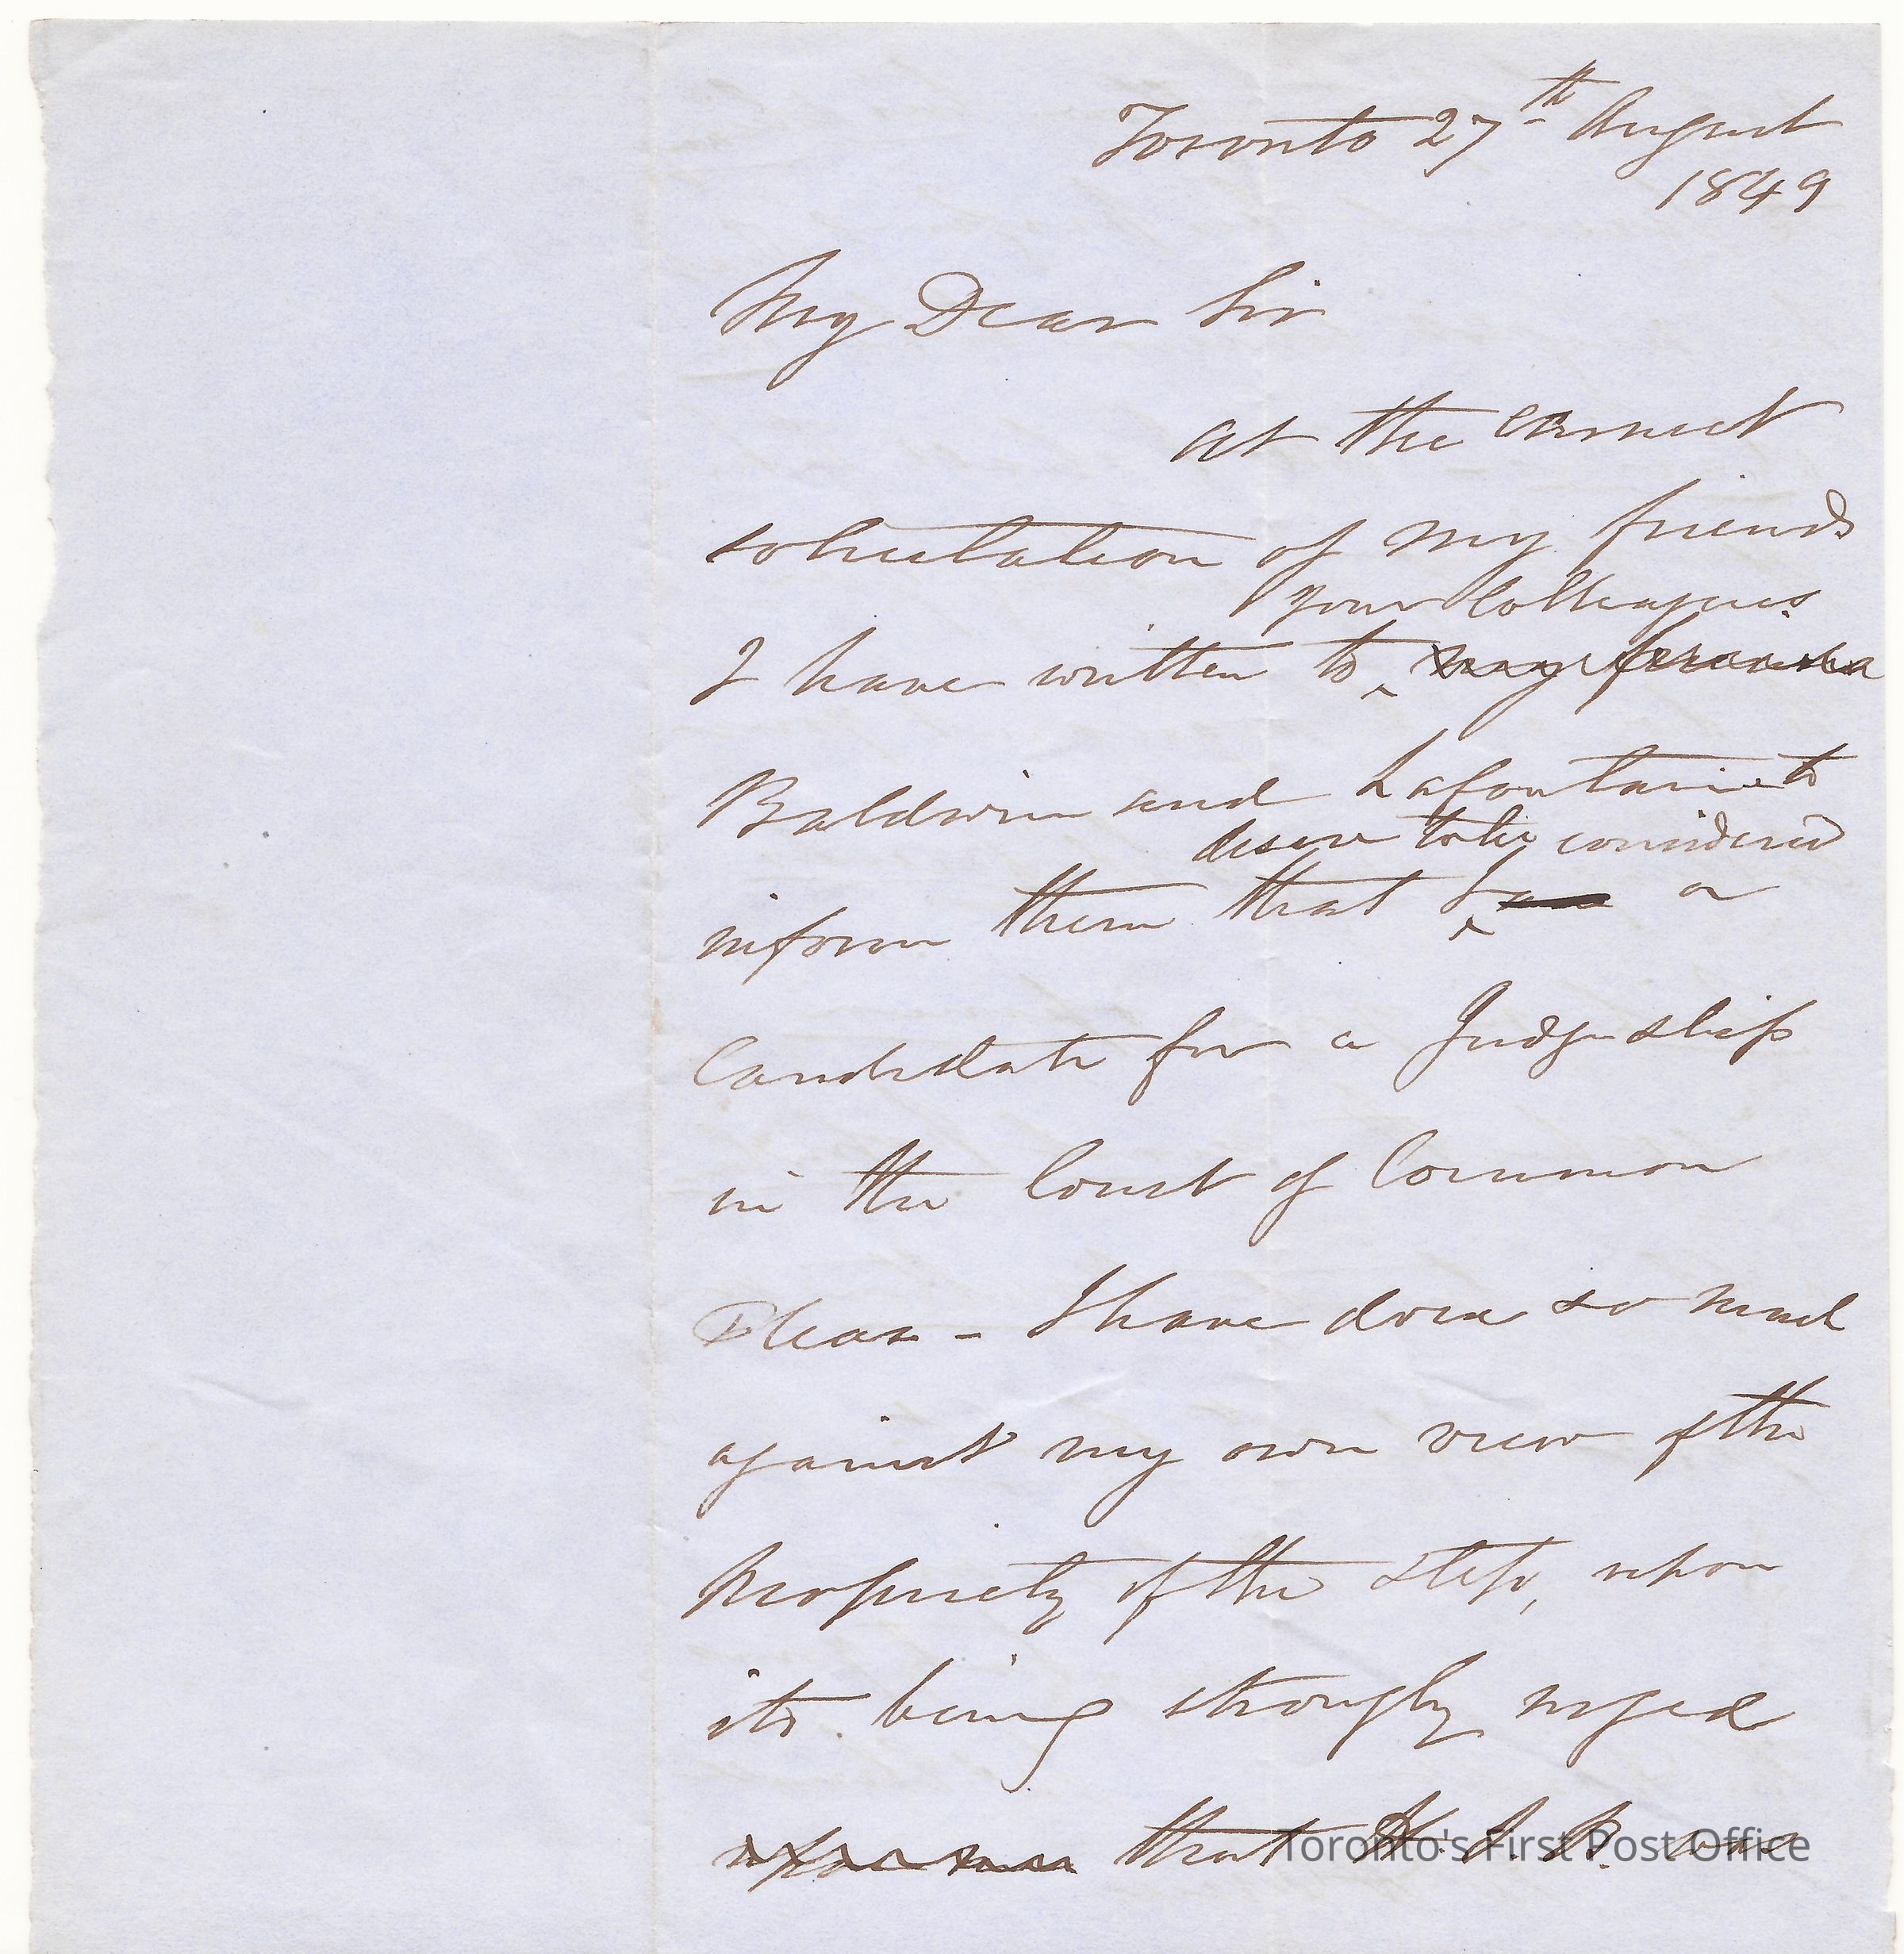 Toronto 27th August
1849
My Dear Sir
at the earnest
solicitation of my friends
your Colleagues
I have written to my friends
Baldwin and Lafontaine to
desire to be considered
inform them that I am a
Candidate for a Judgeship
in the Court of Common
Pleas - I have done so much
against my own view of the
propriety of the step, upon
its being strongly urged
that
Toronto's First Post Office